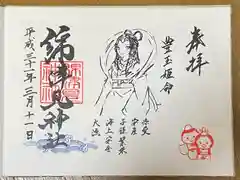 奉拝
豊玉姫命
安産
子孫繁栄
海上安全
大漁
綿津見神社
平成三十一年三月十一日